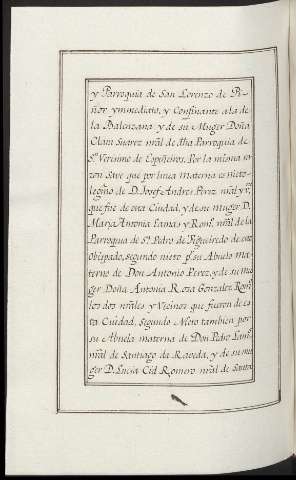 y Parroquia de San Lorenzo de Pi-
ñor ymmediato, y Confinante a la de
la Balenzana y de su Muger Doña
Clara Suarez nral de dha Parroquia de
Sn Verisimo de Espiñeiros. Por la misma ra-
zon Sive que por linea Materna es nieto
legmo de D. Josef Andres Perez nral y vno
que fue de esta Ciudad, y de su muger D.
Maria Antonia Lamas y Romo nral de la
Parroquia de Sn Pedro de Figueiredo de este
Obispado, segundo nieto pr su Abuelo Ma-
terno de Don Antonio Perez, y de su mu-
ger Doña Antonia Rosa Gonzalez Romo
los dos nrales y Vicinos que fueron de es-
ta Cuidad, Segundo Nieto tambien por
su Abuela materna de Don Pedro Lams
nral de Santiago da Raveda, y de su mu-
ger D. Lucia Cid Romero nral de Santa